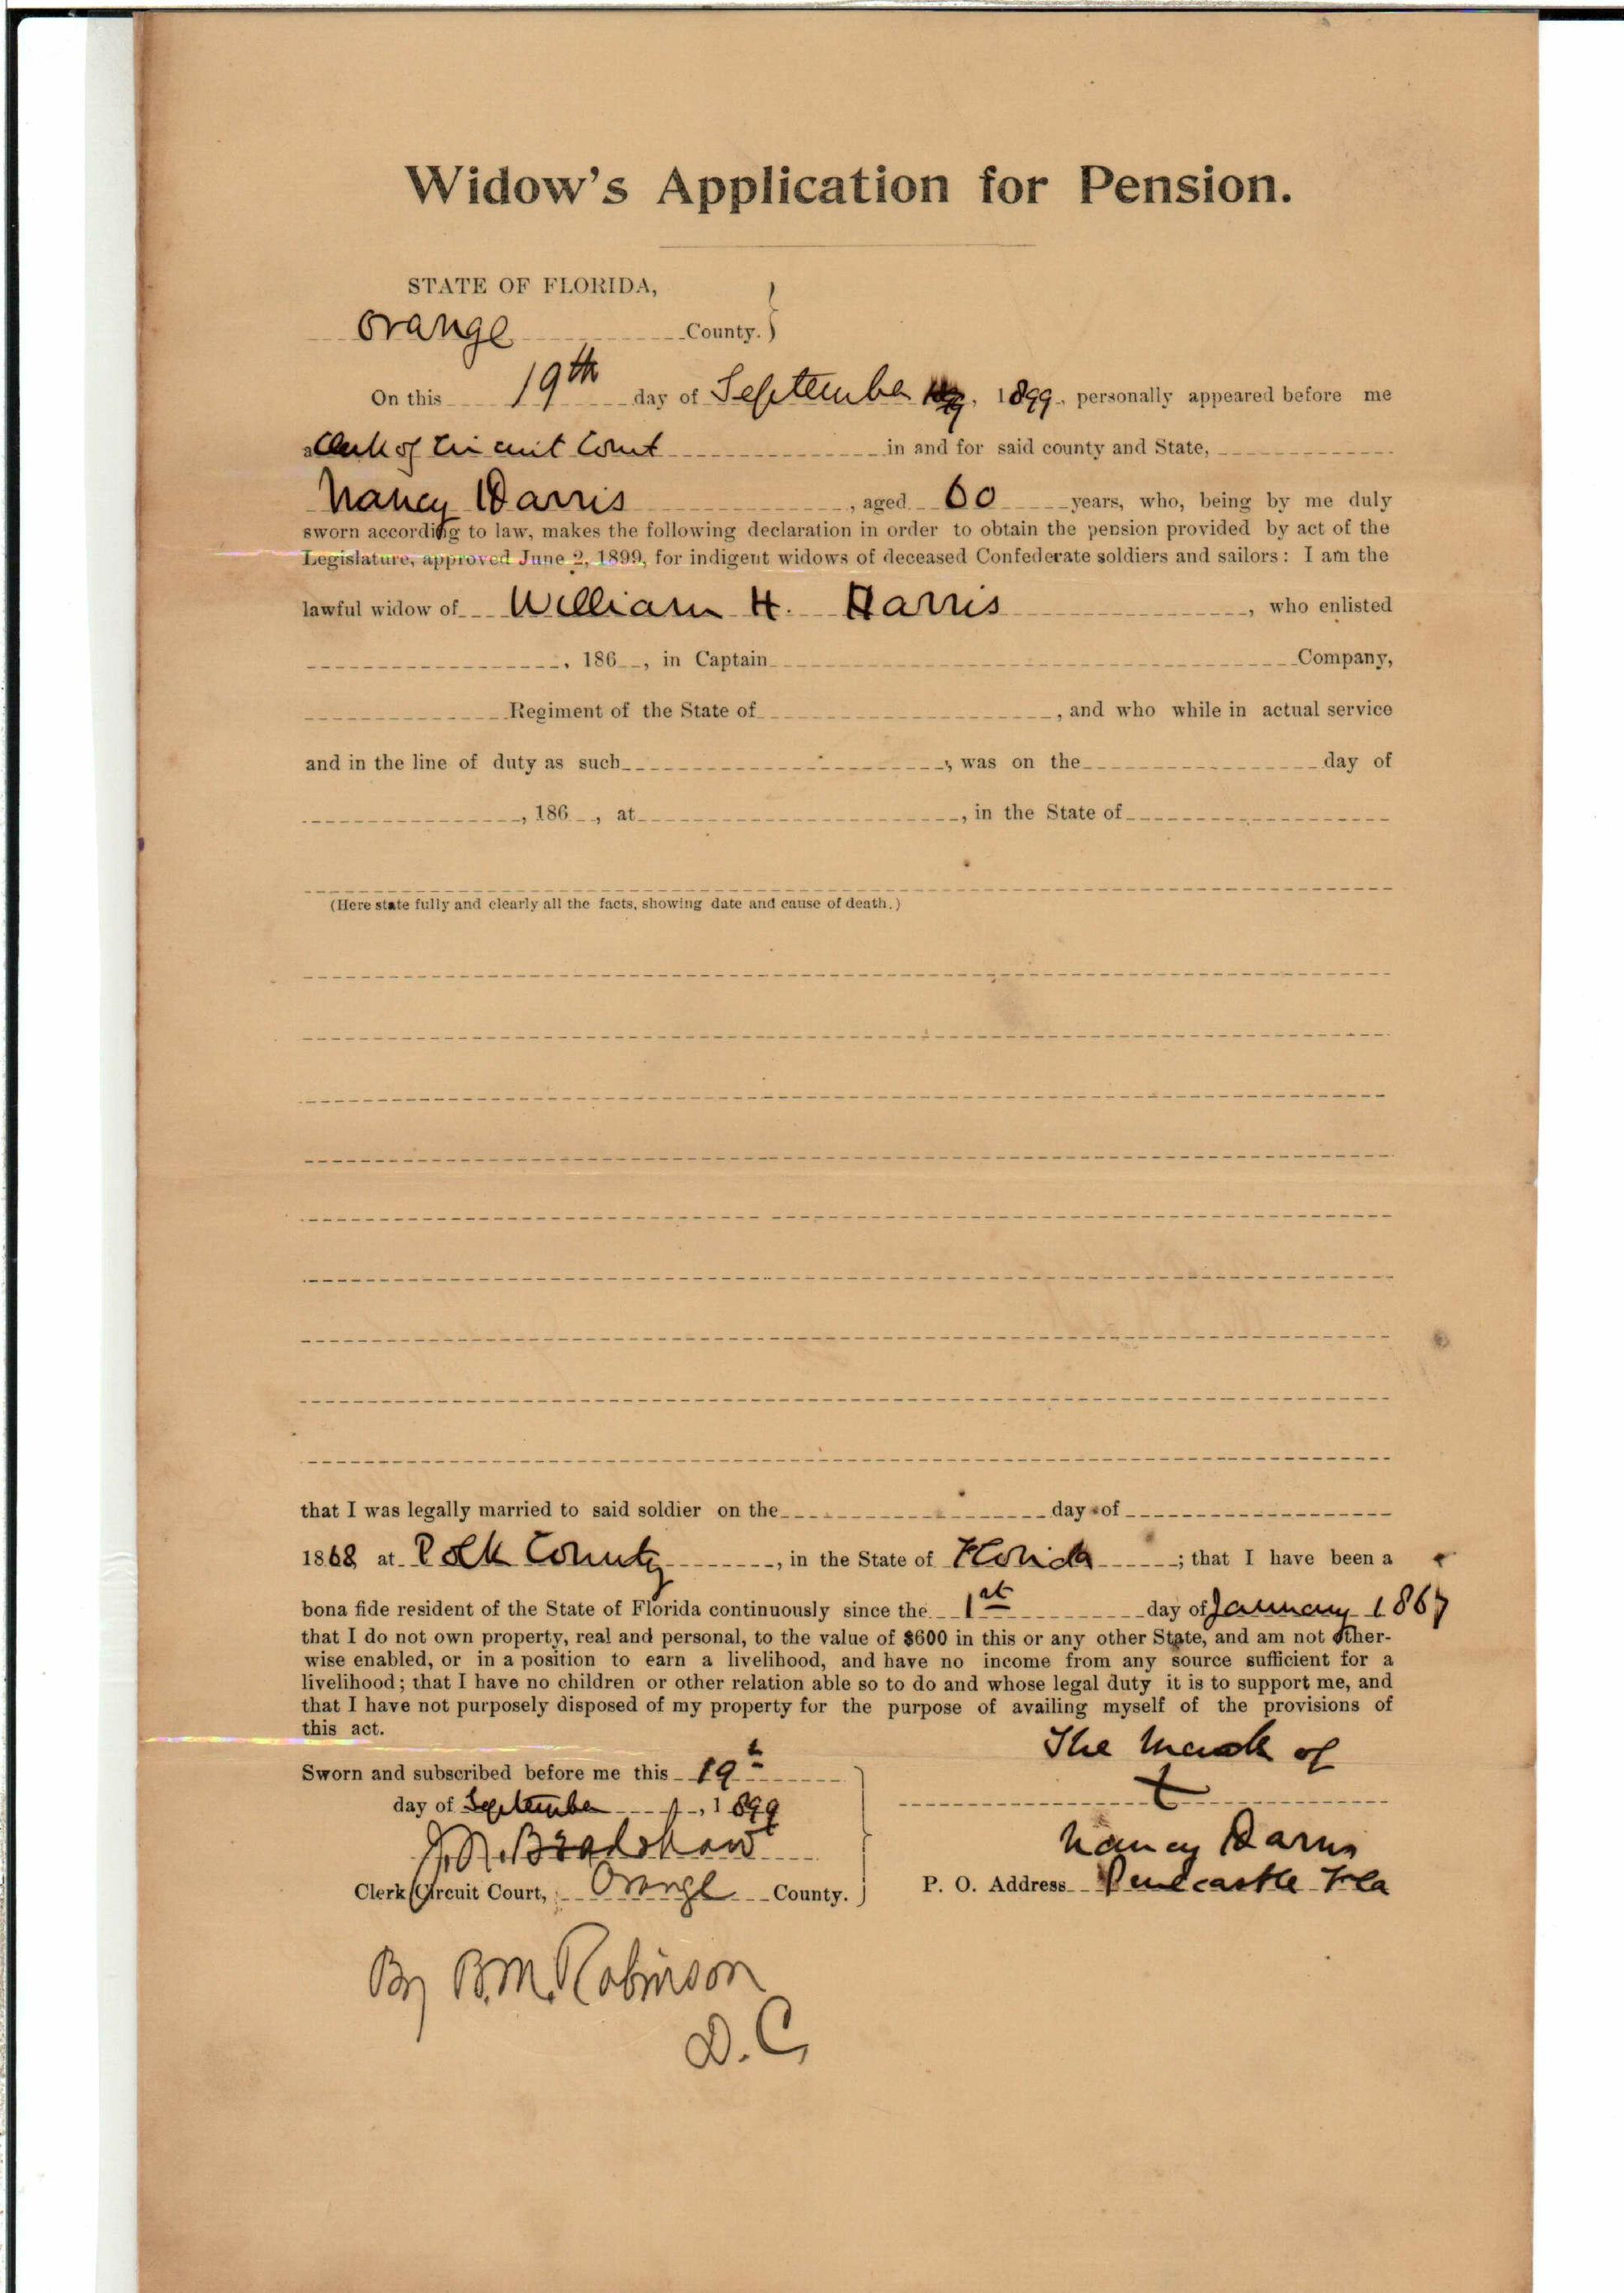 Widow's Application for Pension.
STATE OF FLORIDA,
Orange County. }
On this 19th day of September, 1899, personally appeared before me
a Clerk of Circuit Court in and for said county and State,
Nancy Harris, aged 60 years, who, being by me duly
sworn according to law, makes the following declaration in order to obtain the pension provided by act of the
Legislature, approved June 2, 1899, for indigent widows of deceased Confederate soldiers and sailors: I am the
lawful widow of William H. Harris, who enlisted
, 186 , in Captain Company,
Regiment of the State of , and who while in actual service
and in the line of duty as such , was on the day of
, 186 , at , in the State of
(Here state fully and clearly all the facts, showing date and cause of death.)
that I was legally married to said soldier on the day of
1868 at Polk County, in the State of Florida; that I have been a
bona fide resident of the State of Florida continuously since the 1st day of January 1867
that I do not own property, real and personal, to the value of $600 in this or any other State, and am not other-
wise enabled, or in a position to earn a livelihood, and have no income from any source sufficient for a
livelihood; that I have no children or other relation able so to do and whose legal duty it is to support me, and
that I have not purposely disposed of my property for the purpose of availing myself of the provisions of
this act.
The mark of
Sworn and subscribed before me this 19th
day of September, 1899
Nancy Harris
J. M. Bradshaw
Clerk Circuit Court, Orange County.
P. O. Address Pinecastle Fla
By B.M. Robinson
D.C.